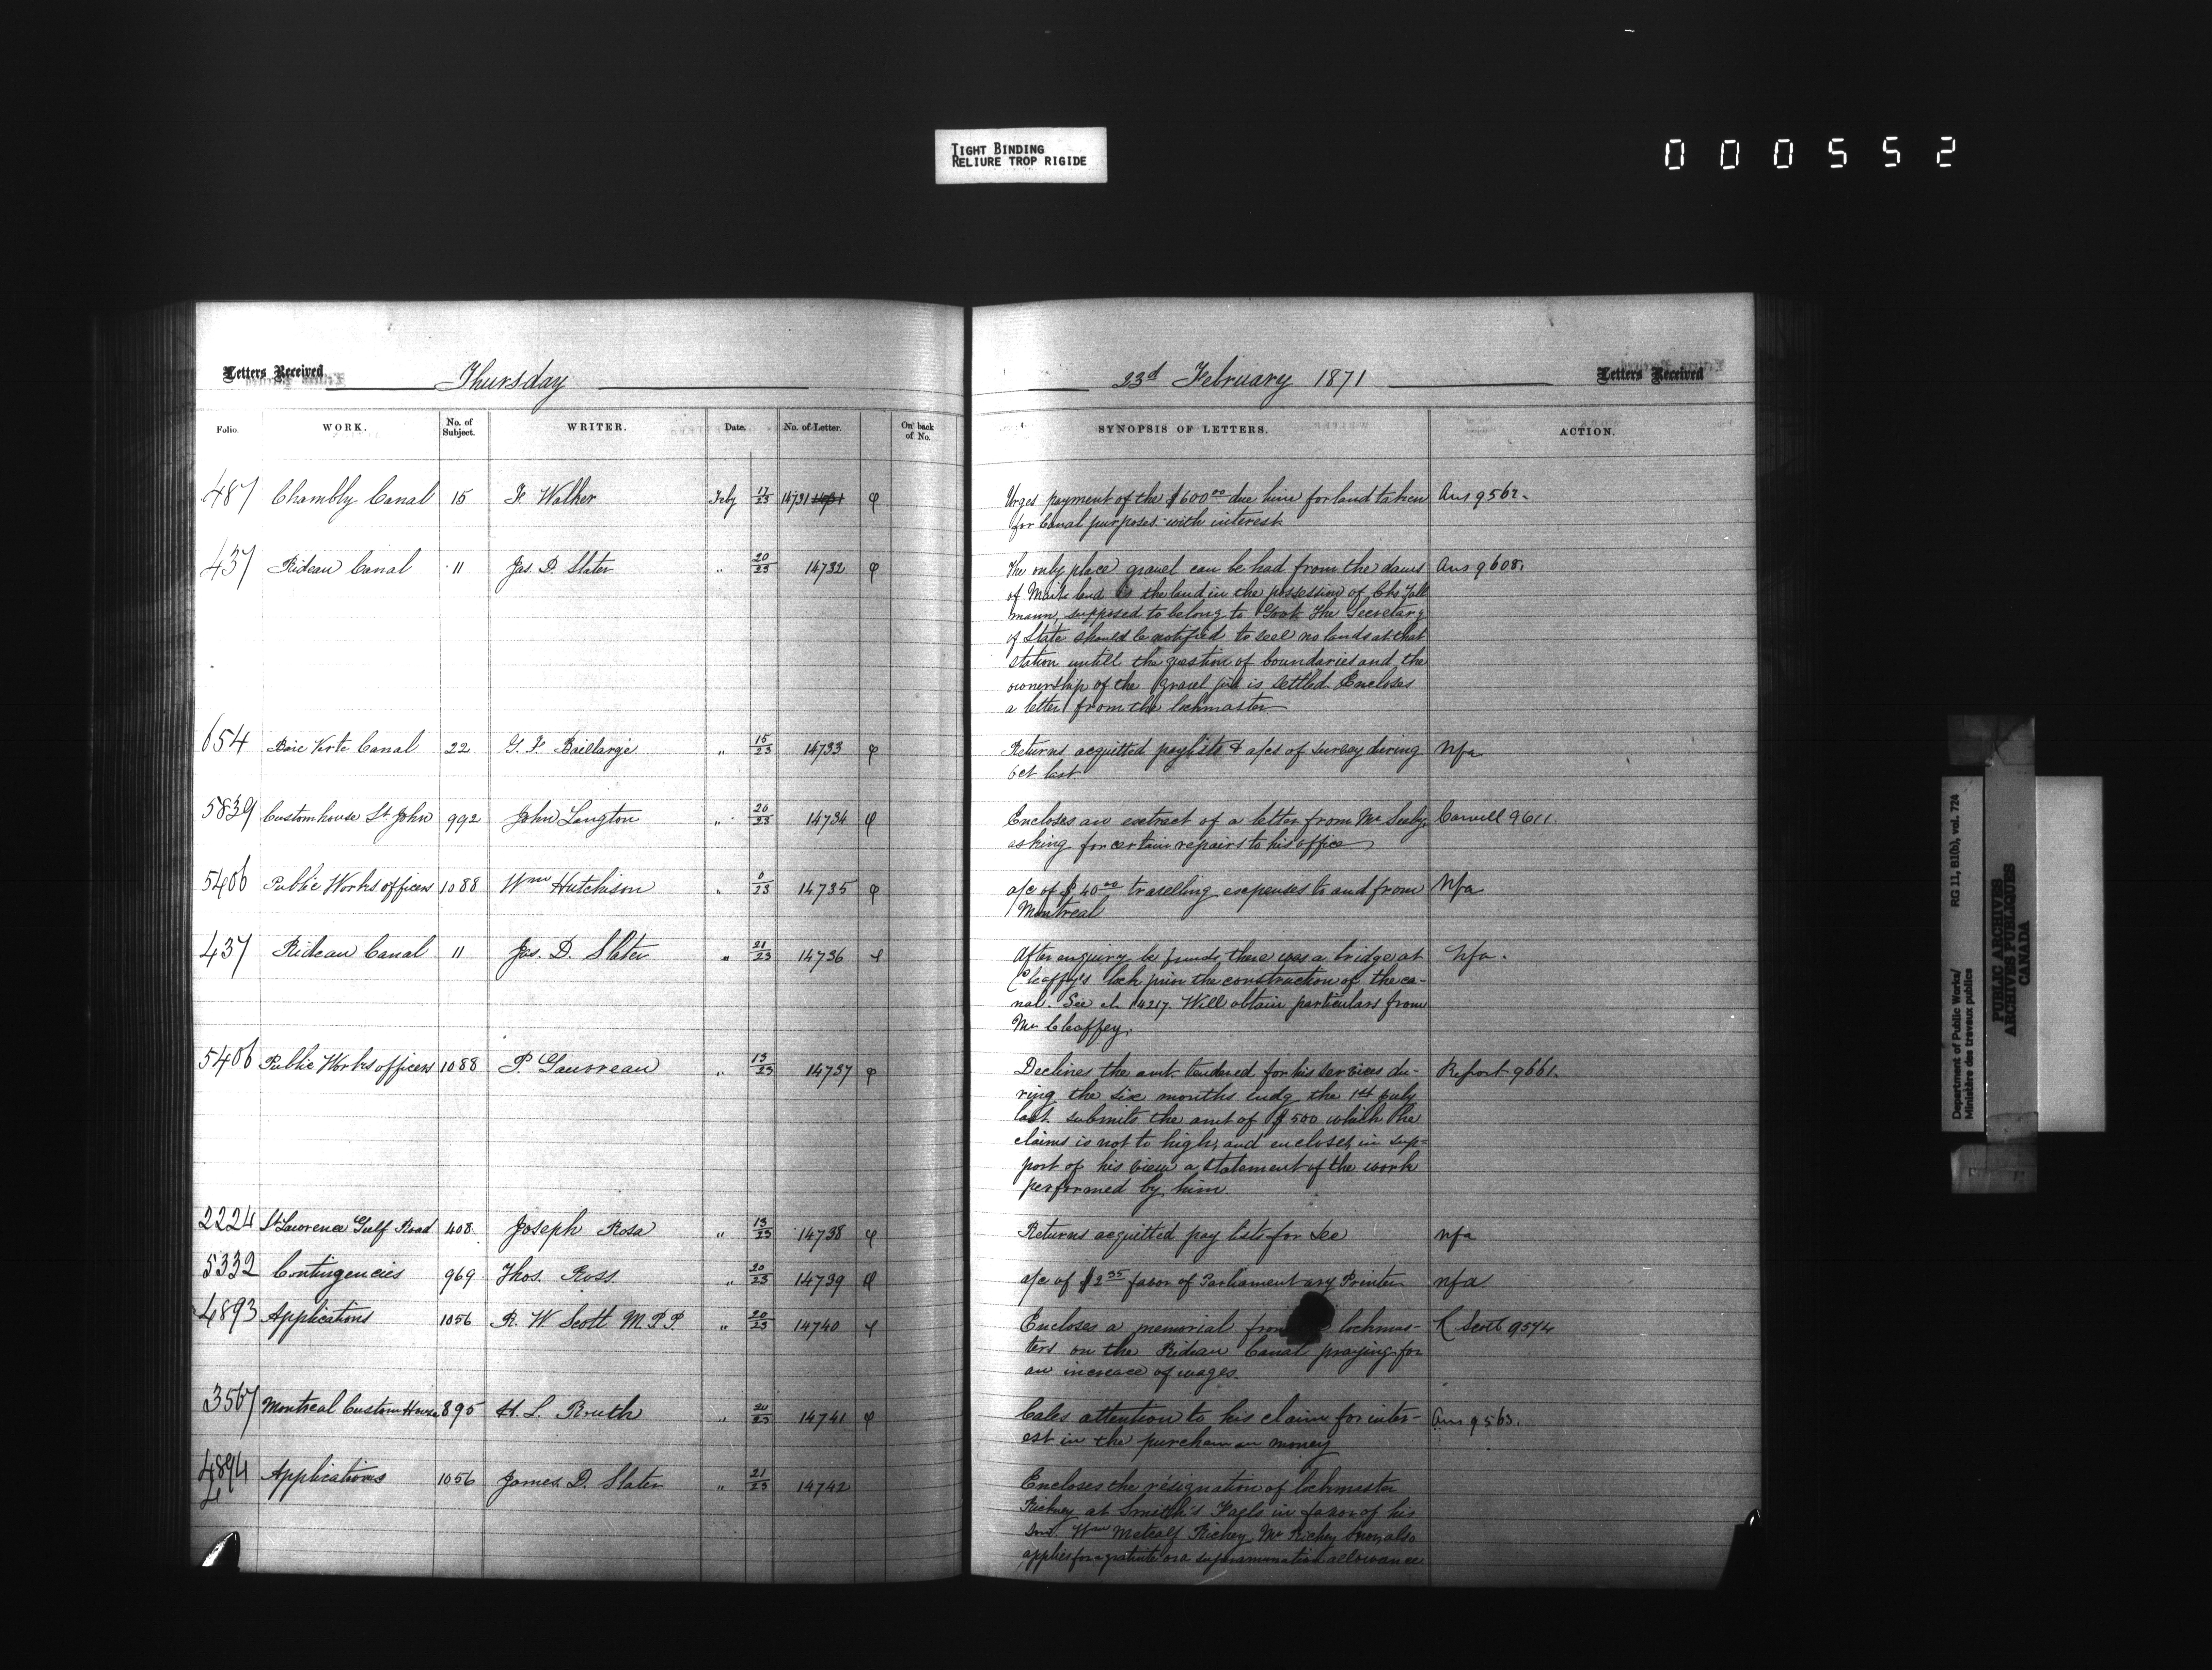 TIGHT BINDING
RELIURE TROP RIGIDE
000552
Letters Received
Thursday
23d February 1871
Letters Received
Folio. WORK. No. of Subject. WRITER. Date. No. of Letter. On back of No. SYNOPSIS OF LETTERS. ACTION.
487 Chambly Canal 15 F. Walker Feby 17/23 14731 Urges payment of the $600.00 due him for land taken Ans 9562.
for Canal purposes with interest
437 Rideau Canal 11 Jas. D. Slater " 20/23 14732 The only place gravel can be had from the dams Ans 9608.
of is the land in the possession of Chs
mann, supposed to belong to Govt. The Secretary
of State should be notified to sell no lands at that
station untill the question of boundaries and the
ownership of the gravel pit is settled. Encloses
a letter from the lockmaster
654 Baie Verte Canal 22 G. F. Baillargé " 15/23 14733 Returns acquitted paylists & a/cs of survey during Nfa
Oct last
5839 Customhouse St John 992 John Langton " 20/23 14734 Encloses an extract of a letter from Mr Seely 9611.
asking for certain repairs to his office
5406 Public Works officers 1088 Wm Hutchison " 0/23 14735 a/c of $40.00 travelling expenses to and from Nfa
Montreal
437 Rideau Canal 11 Jas. D. Slater " 21/23 14736 After enquiry he finds there was a bridge at Nfa.
Chaffey's lock prior the construction of the ca-
nal. See 14217. Will obtain particulars from
Mr Chaffey.
5406 Public Works officers 1088 P. Gauvreau " 13/23 14737 Declines the amt. tendered for his services du- Report 9661.
ring the six months endg the 1st July
last submits the amt of $500 which he
claims is not to high, and encloses in sup-
port of his view a statement of the work
performed by him
2224 St Lawrence Gulf Road 408 Joseph Rosa " 13/23 14738 Returns acquitted pay lists for Dec nfa
5332 Contingencies 969 Thos. Ross " 20/23 14739 a/c of $2.35 favor of Parliamentary Printer nfa
4893 Applications 1056 R. W Scott M.P.P. " 20/23 14740 Encloses a memorial from lockmas- R Scott 9574
ters on the Rideau Canal praying for
an increase of wages.
3567 Montreal Custom House 895 H. L. Routh " 20/23 14741 Calls attention to his claim for inter- Ans 9563.
est in the purchase money
4894 Applications 1056 James D. Slater " 21/23 14742 Encloses the résignation of lockmaster
Richey at Smith's Falls in favor of his
son. Wm Metcalf Richey. Mr Richey also
applies for a gratuite or a superannuation allowance
Department of Public Works/
Ministère des travaux publics
RG 11, B1(b), vol. 724
PUBLIC ARCHIVES
ARCHIVES PUBLIQUES
CANADA